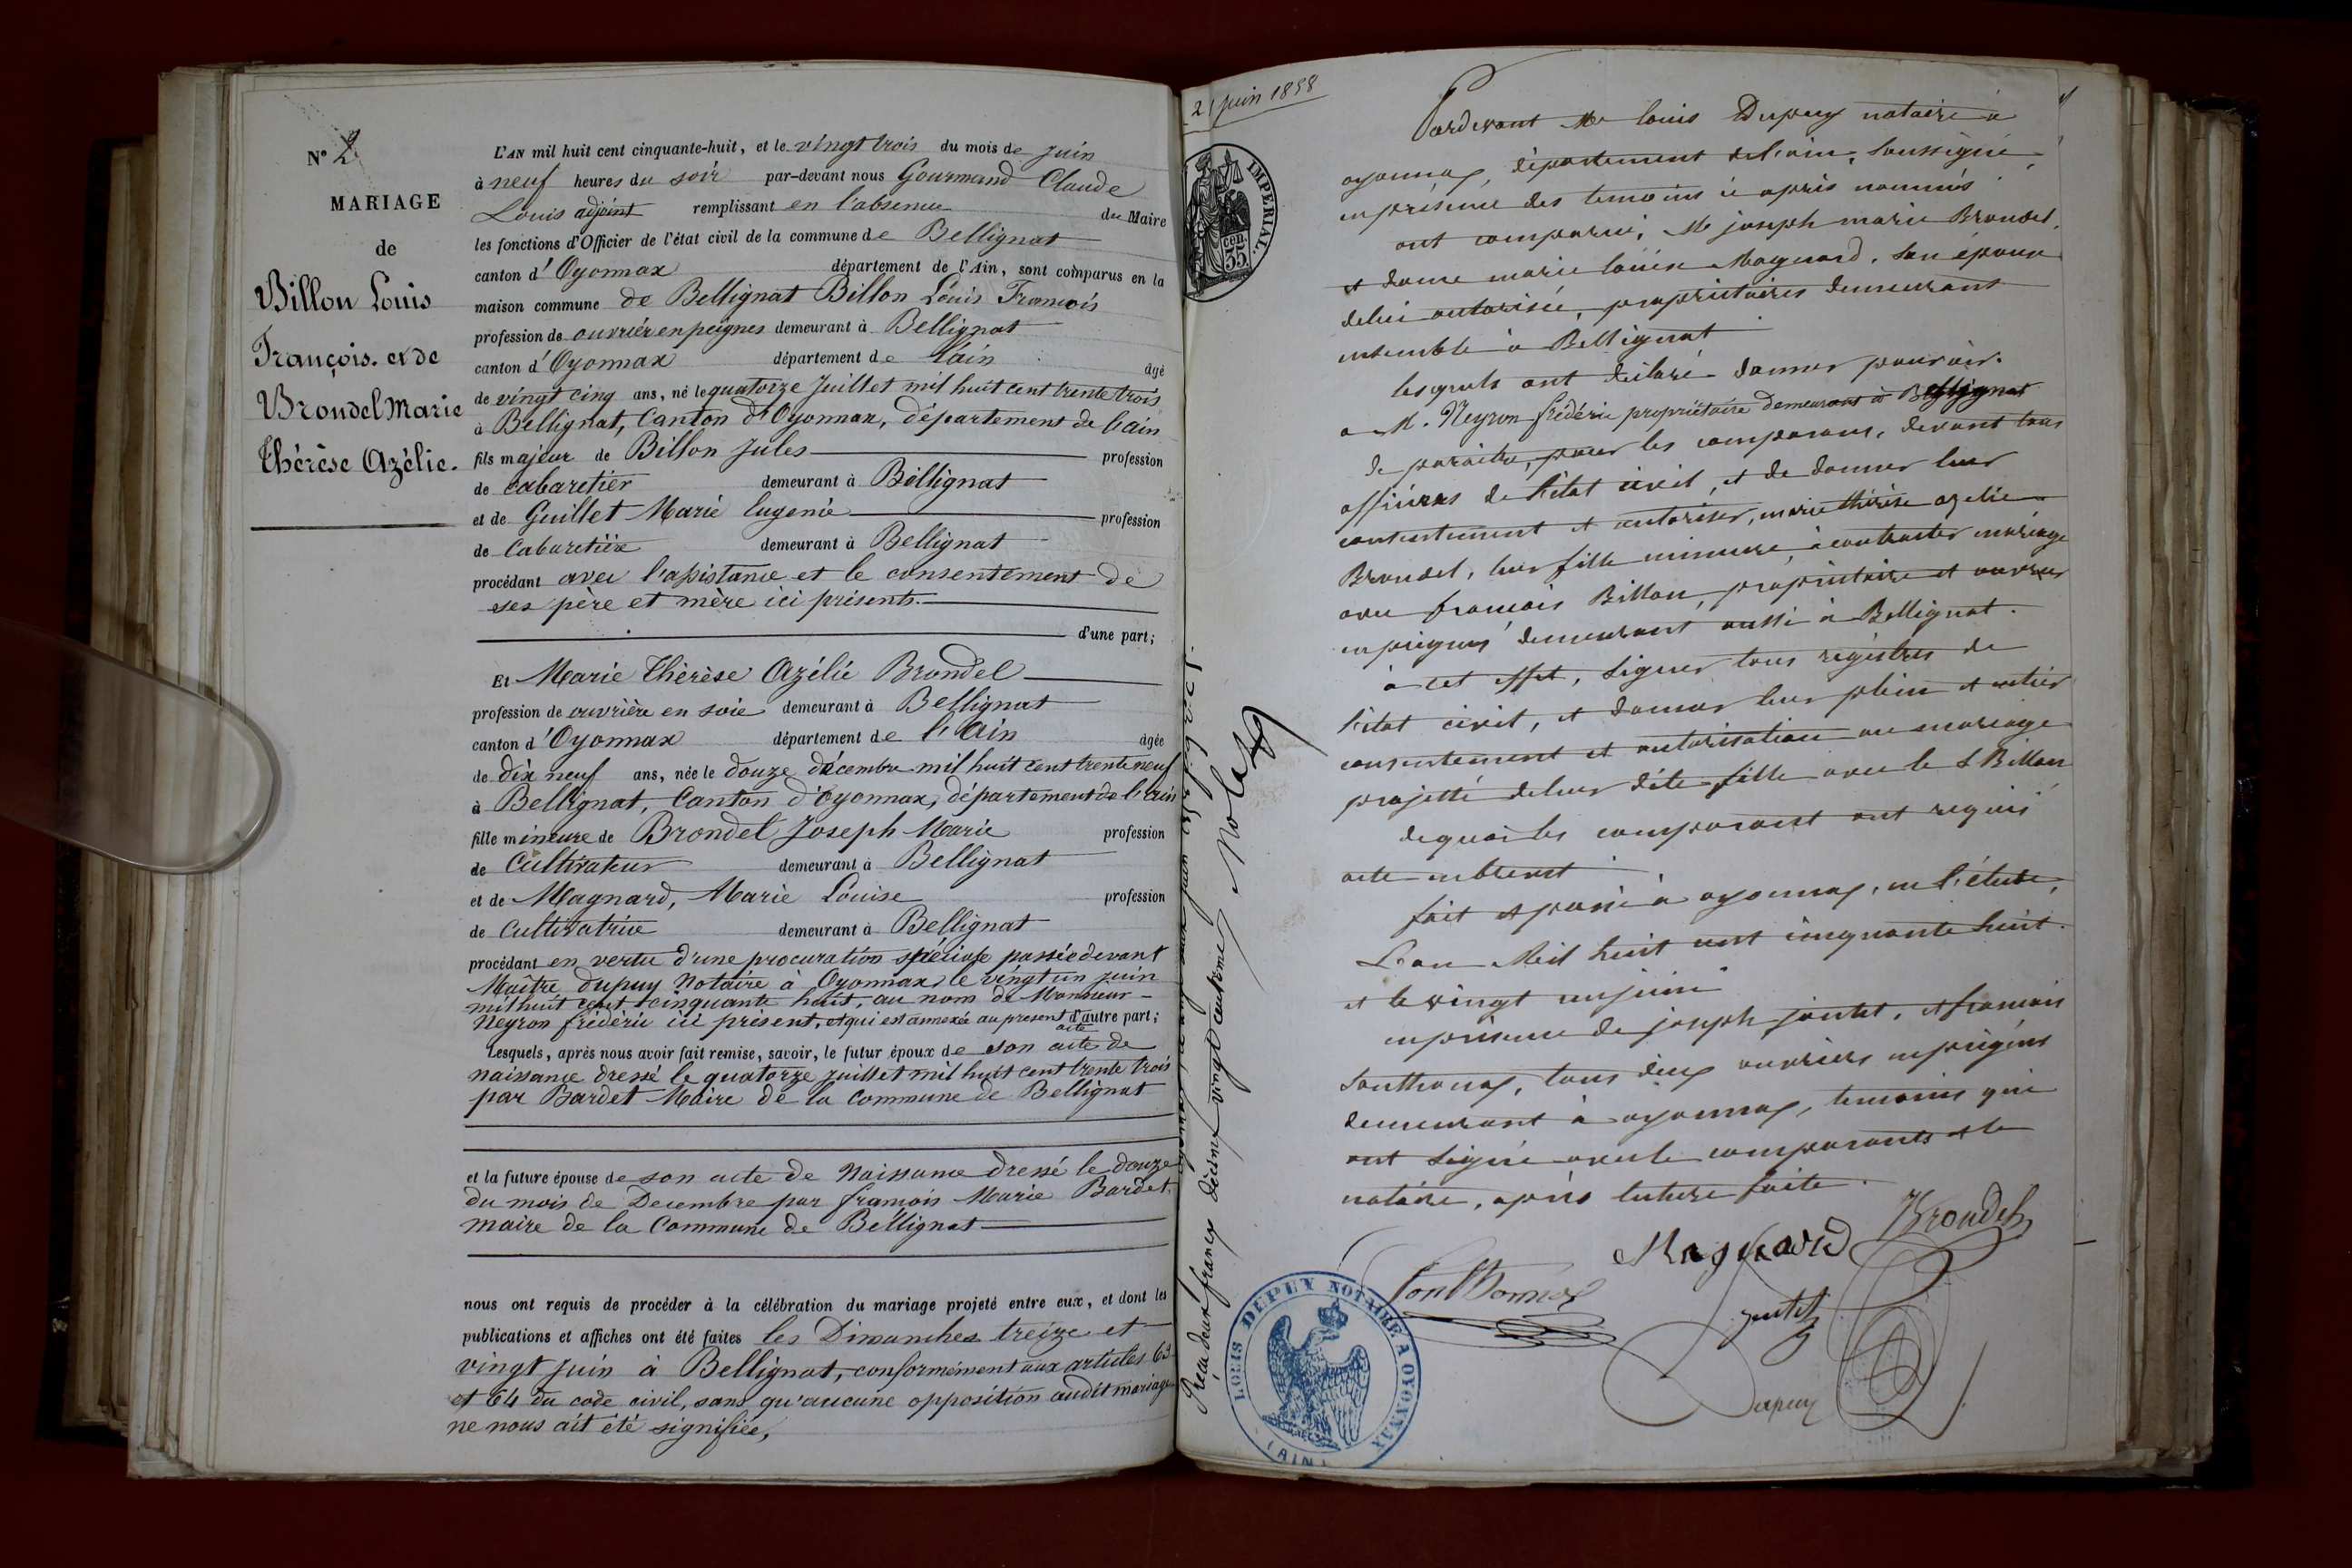 N° 2
MARIAGE
de
Billon Louis
François. et de
Brondel Marie
Thérèse Azélie.
L'AN mil huit cent cinquante-huit, et le vingt trois du mois de juin
à neuf heures du soir par-devant nous Gourmand Claude
Louis adjoint remplissant en l'absence du Maire
les fonctions d'Officier de l'état civil de la commune de Bellignat
canton d'Oyonnax département de l'Ain, sont comparus en la
maison commune de Bellignat Billon Louis François
profession de ouvrier en peignes demeurant à Bellignat
canton d'Oyonnax département de l'ain âgé
de vingt cinq ans, né le quatorze Juillet mil huit cent trente trois
à Bellignat, Canton d'Oyonnax, département de l'ain
fils majeur de Billon Jules profession
de cabaretier demeurant à Bellignat
et de Guillet Marie Eugenie profession
de Cabaretière demeurant à Bellignat
procédant avec l'assistance et le consentement de
ses père et mère ici présents.
d'une part;
Et Marie Thérèse Azélie Brondel
profession de ouvrière en soie demeurant à Bellignat
canton d'Oyonnax département de l'Ain âgée
de dix neuf ans, née le douze décembre mil huit cent trente neuf
à Bellignat, Canton d'Oyonnax, département de l'ain
fille mineure de Brondel Joseph Marie profession
de Cultivateur demeurant à Bellignat
et de Magnard, Marie Louise profession
de Cultivatrice demeurant à Bellignat
procédant en vertu d'une procuration spéciale passée devant
Maître Dupuy Notaire à Oyonnax le vingt un juin
mil huit cent cinquante huit, au nom de Monsieur
Neyron frédéric ici présent, et qui est annexée au present acte d'autre part;
Lesquels, après nous avoir fait remise, savoir, le futur époux de son acte de
naissance dressé le quatorze juillet mil huit cent trente trois
par Bardet Maire de la commune de Bellignat
et la future épouse de son acte de Naissance dressé le douze
du mois de Decembre par françois Marie Bardet.
maire de la Commune de Bellignat
nous ont requis de procéder à la célébration du mariage projeté entre eux, et dont les
publications et affiches ont été faites les Dimanches treize et
vingt juin à Bellignat, conformément aux articles 63
et 64 du code civil, sans qu'aucune opposition audit mariage
ne nous ait été signifiée,
21 juin 1858
IMPERIAL.
35 cen.
Pardevant Me louis Dupuy notaire à
oyonnax, département de l'ain, soussigné,
en présence des temoins ci après nommés
ont comparu, Mr joseph marie Brondel,
et dame marie louise Magnard, son épouse
de lui autorisée, propriétaires demeurant
ensemble à Bellignat
lesquels ont déclaré donner pouvoir.
a M. Neyron frédéric propriétaire demeurant à Bellignat
de paraitre, pour les comparans, devant tous
officiers de l'état civil, et de donner leur
consentement et autoriser, marie thérèse azelie
Brondel, leur fille mineure, à contracter mariage
avec françois Billon, propriétaire et ouvrier
en peignes demeurant aussi à Bellignat.
à cet effet, signer tous régistres de
l'état civil, et donner leur plein et entier
consentement et autorisation au mariage
projetté de leur dite fille avec le S Billon
de quoi les comparant ont requis
acte
fait et passé à oyonnax, en l'étude,
L'an Mil huit cent cinquante huit.
et le vingt un juin
en présence de joseph joutet, et francois
Sonthonax, tous deux ouvriers en peignes
demeurant à oyonnax, temoins qui
ont signé avec le comparants et le
notaire, après lecture faite.
Magnard
Brondel
Sonthonnax
joutet
Dupuy
LOUIS DEPUY NOTAIRE A OYONNAX
(AIN)
Reçu deux francs décime vingt centimes